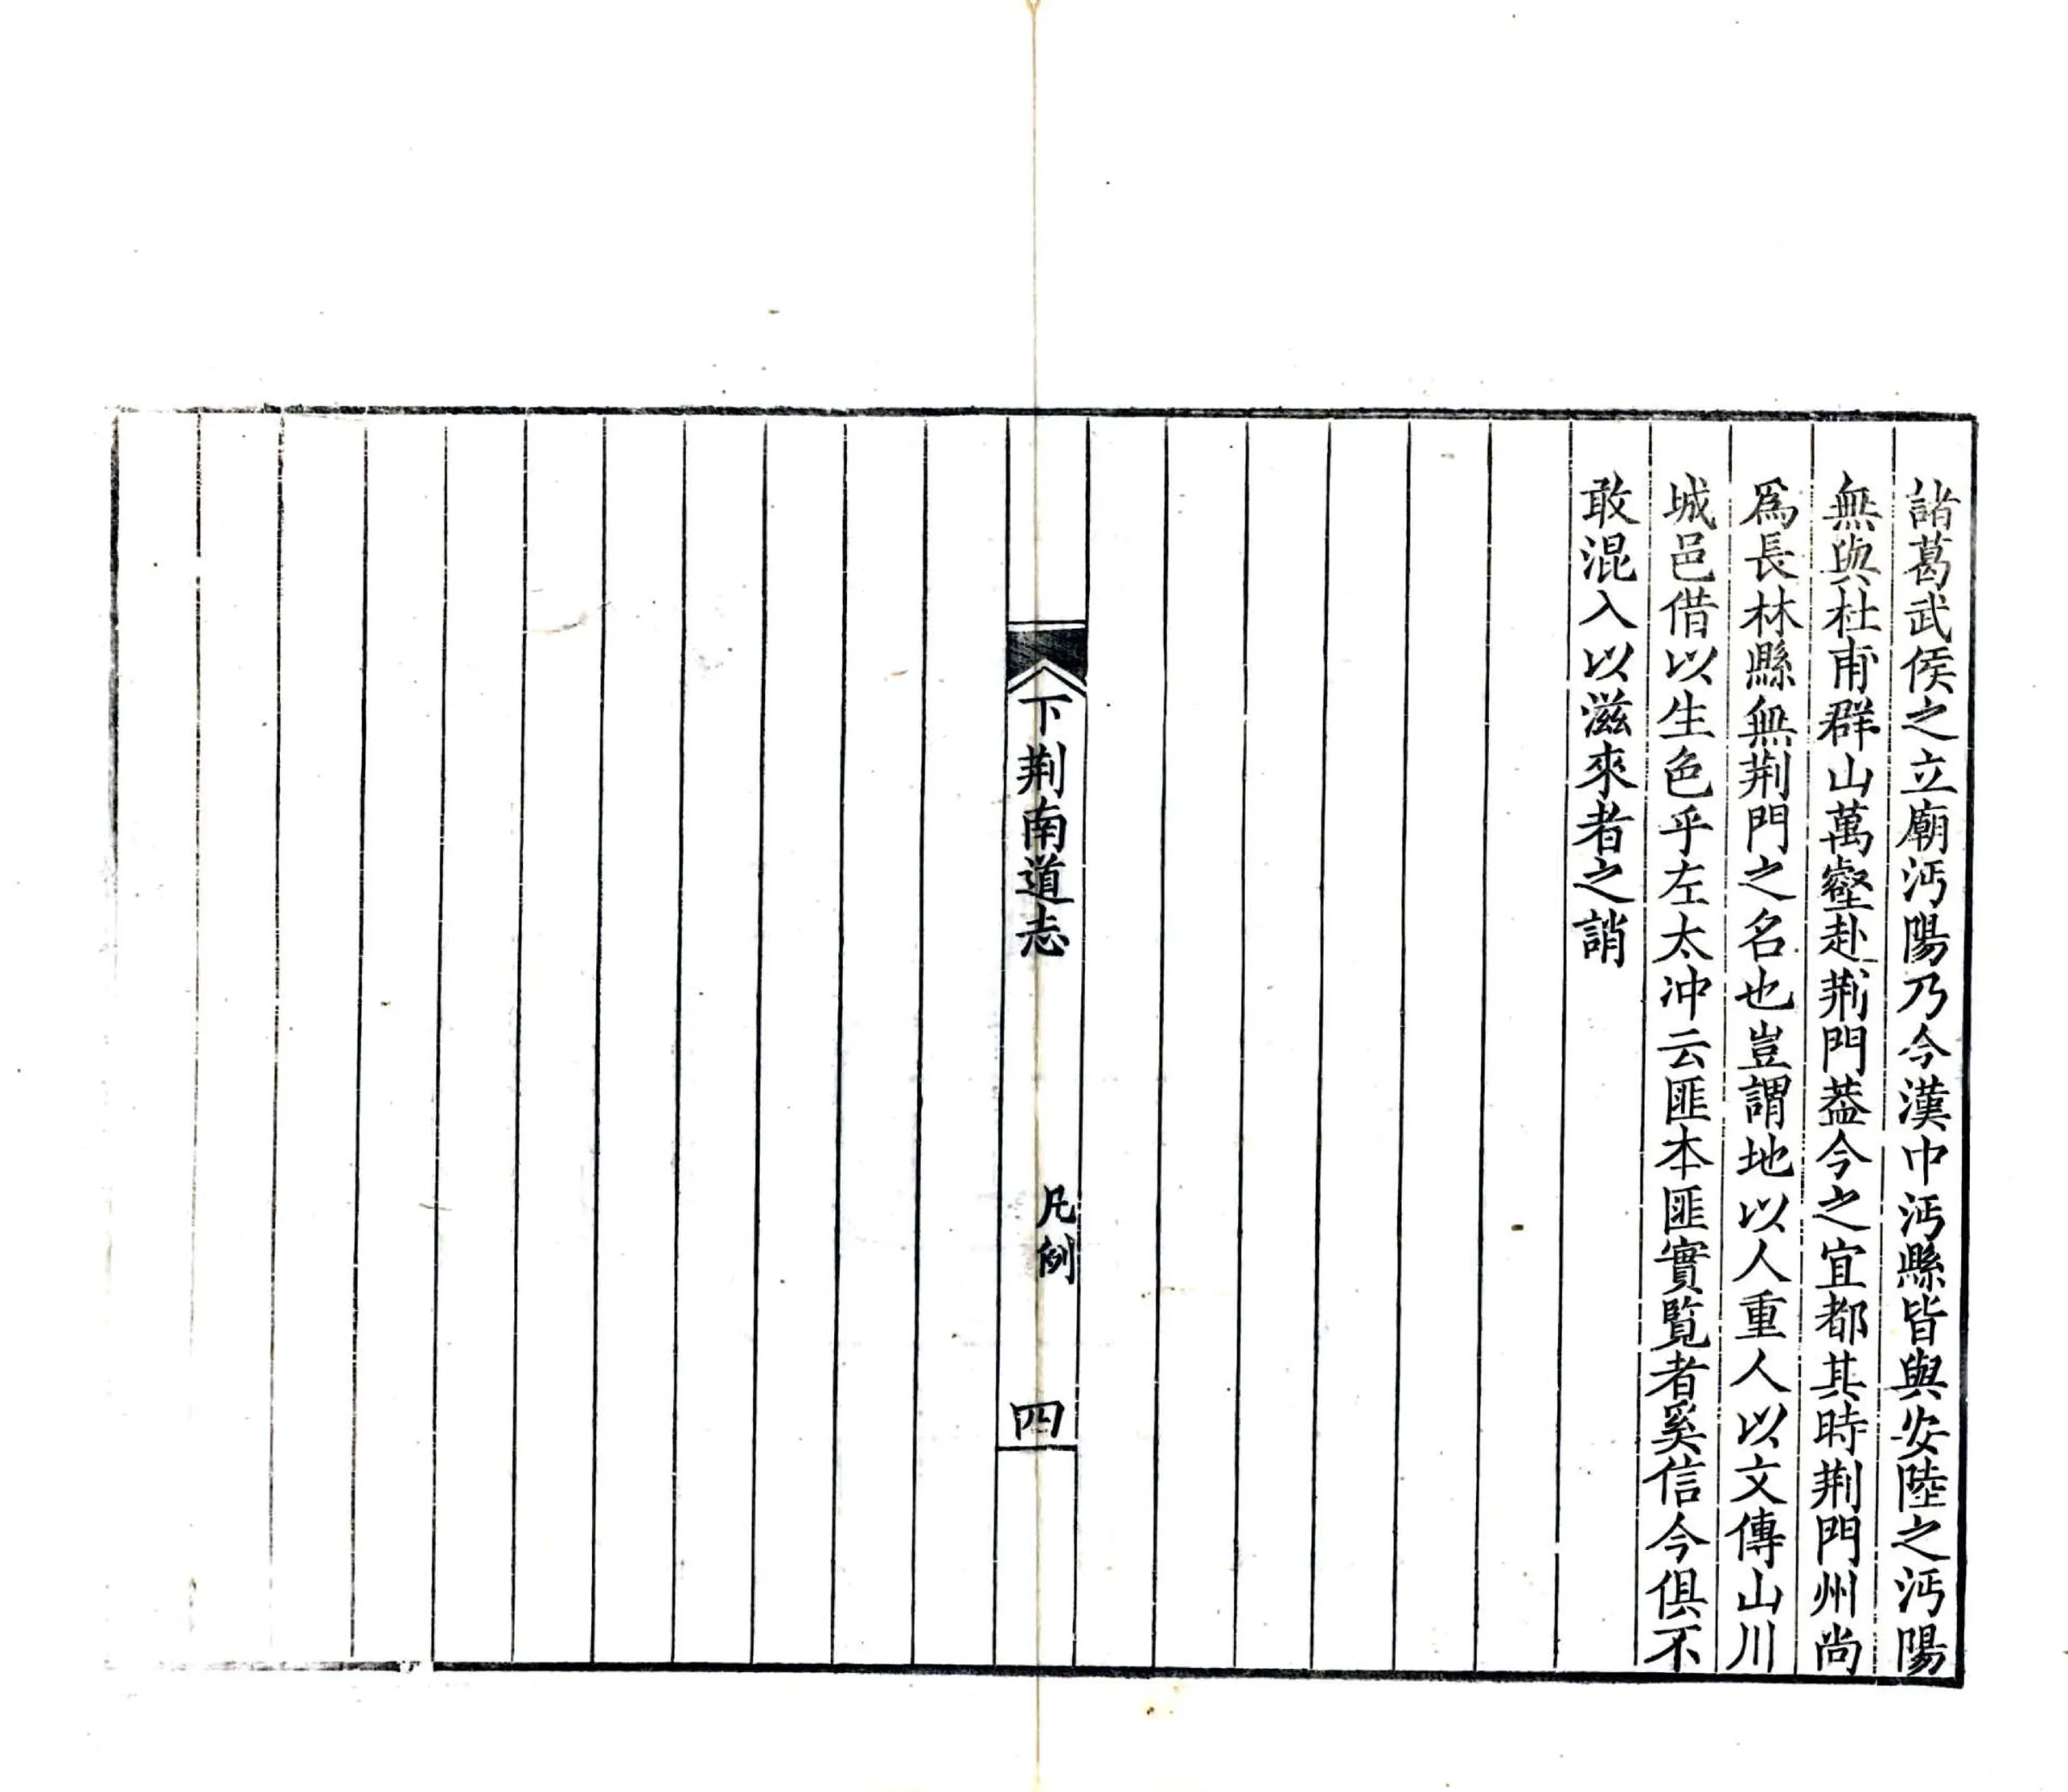 諸葛武侯之立廟沔陽乃今漢中沔縣皆與安陸之沔陽
無與杜甫群山萬壑赴荆門葢今之宜都其時荆門州尚
爲長林縣無荆門之名也豈謂地以人重人以文傳山川
城邑借以生色乎左太冲云匪本匪實覧者奚信今俱不
敢混入以滋來者之誚
下荆南道志
凡例
四